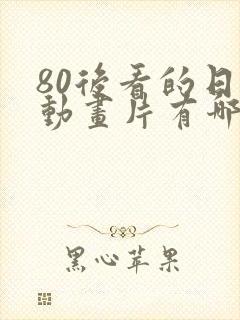 80後看的日
動畫片有哪
黑心苹果